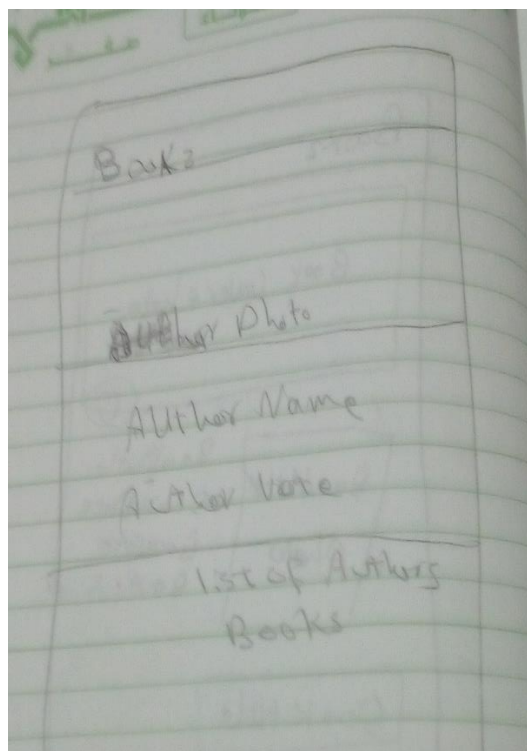 Books
Author Photo
AUther Name
Auther Vote
List of Authors
Books